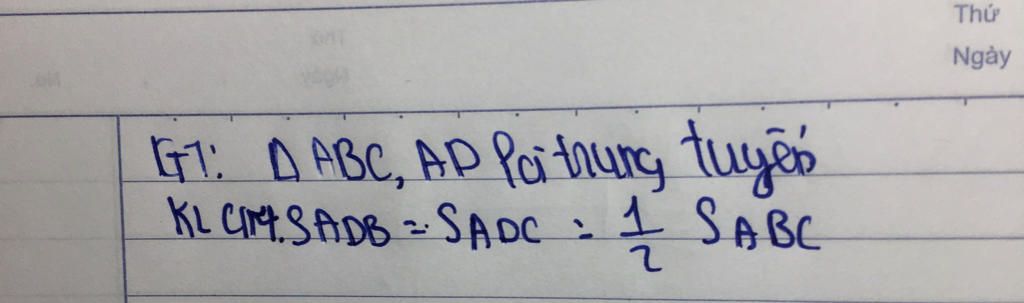 Thứ
Ngày
GT: Δ ABC, AD là trung tuyến
KL CM: SADB = SADC = 1/2 SABC